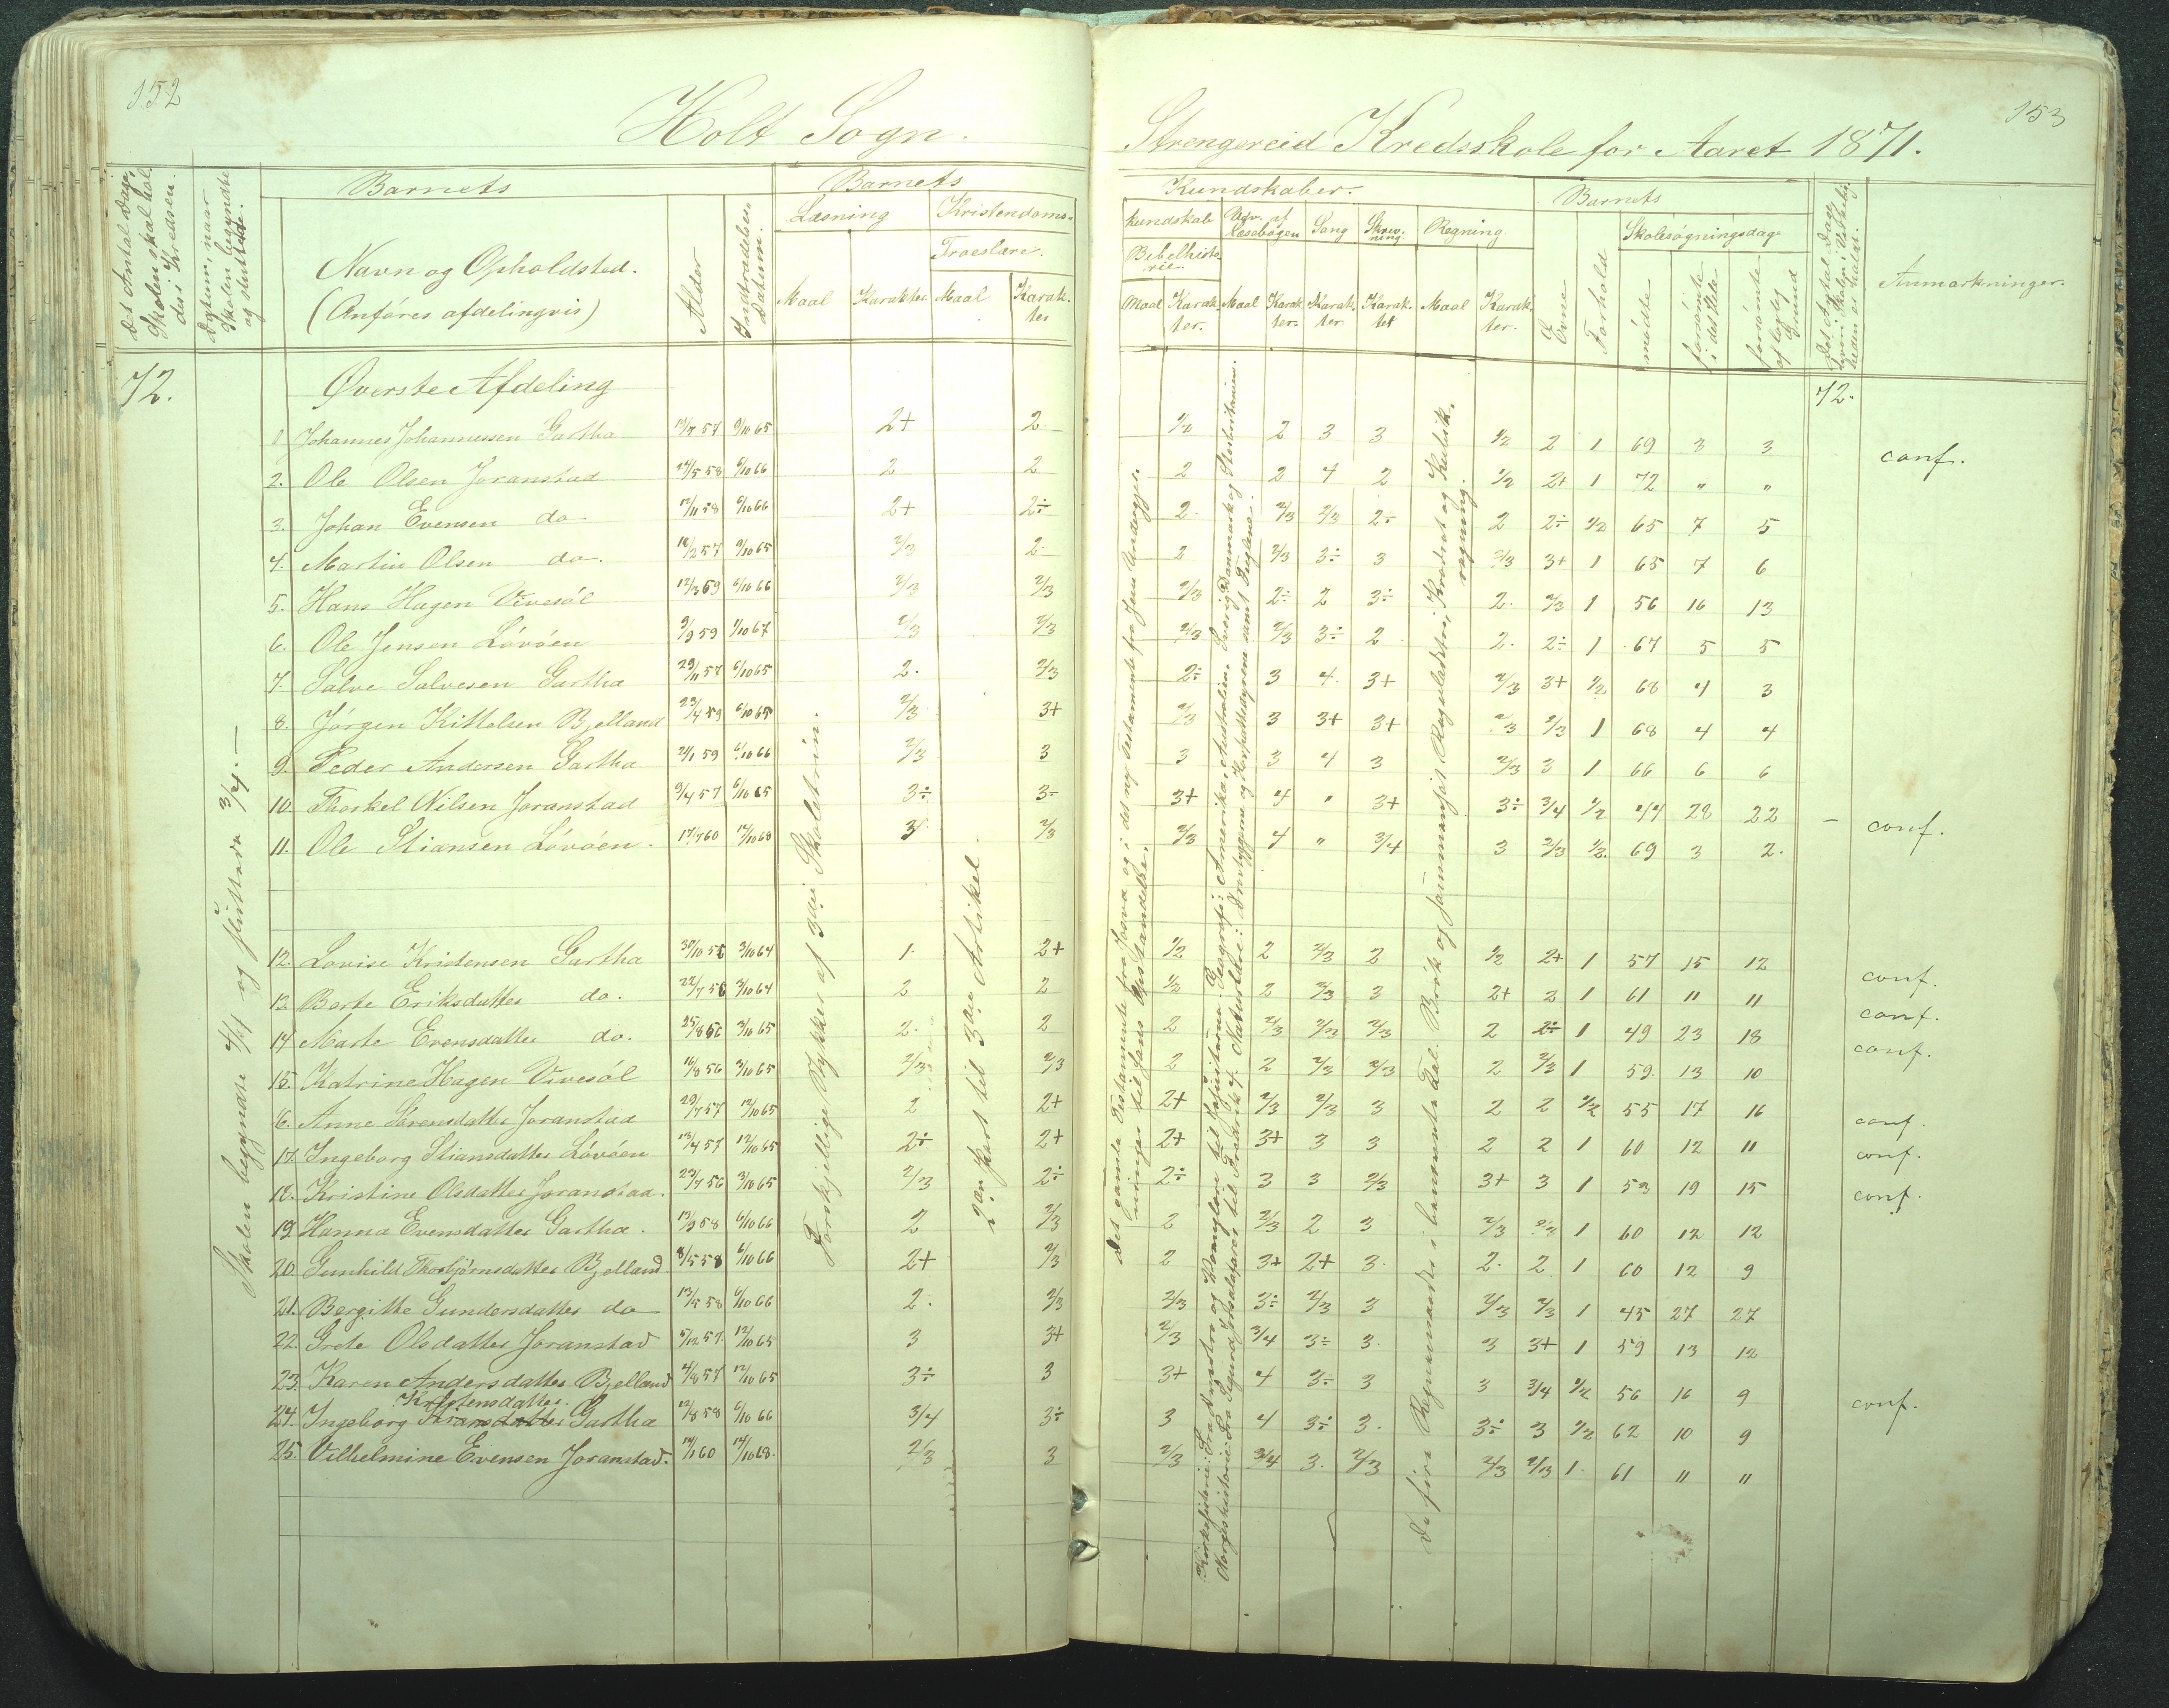 152
Holt Sogn.
Det Antal Dage, Skolen skal holdes i Kredsen.
Datum, naar Skolen begyndte og sluttede.
Barnets
Navn og Opholdsted.
(Anføres afdelingvis)
Alder
Indtrædelses-Datum.
Barnets
Læsning
Maal
Karakter
Kristendoms-
Troeslære.
Maal
Karakter
72.
Øverste Afdeling
Skolen begyndte 4/1 og sluttede 3/4.—
Forskjellige Stykker af 3die Skoletrin.
2den Part til 3die Artikel.
1 Johannes Johannessen Gartha 9/10 65 2+ 2.
2. Ole Olsen Joranstad 24/5 58 6/10 66 2 2
3. Johan Evensen do 17/11 58 6/10 66 2+ 2÷
4. Martin Olsen do. 18/2 57 9/10 65 2/3 2.
5. Hans Hagen Vivesøl 12/3 59 6/10 66 2/3 2/3
6. Ole Jensen Løvøen 9/9 59 1/10 67 2/3 2/3
7. Salve Salvesen Gartha 29/11 57 6/10 65 2. 2/3
8. Jørgen Kittelsen Bjelland 23/4 59 6/10 65 2/3 3+
9. Peder Andersen Gartha 21/1 59 6/10 66 2/3 3
10. Thorkel Nilsen Joranstad 9/4 57 6/10 65 3÷ 3÷
11. Ole Stiansen Løvøen. 17/7 60 12/10 68 3 2/3
12. Lovise Kristensen Gartha 30/10 56 3/10 64 1. 2+
13. Berte Eriksdatter do. 22/7 56 3/10 64 2 2
14 Marte Evensdatter do. 25/8 56 3/10 65 2. 2
15. Katrine Hagen Vivesøl 16/8 56 3/10 65 2/3 2/3
16. Anne Sørensdatter Joranstad 29/7 57 12/10 65 2 2+
17. Ingeborg Stiansdatter Løvøen 13/4 57 12/10 65 2÷ 2+
18. Kristine Olsdatter Joranstad. 23/7 56 3/10 65 2/3 2÷
19. Hanna Evensdatter Gartha. 13/9 58 6/10 66 2 2/3
20. Gunhild Thorbjørnsdatter Bjelland 8/5 58 6/10 66 2+ 2/3
21. Bergitte Gundersdatter do 13/5 58 6/10 66 2. 2/3
22. Grete Olsdatter Joranstad 5/12 57. 12/10 65 3 3+
23. Karen Andersdatter Bjelland 4/8 57 12/10 65 3÷ 3
Kristensdatter.
24. Ingeborg Gartha 12/8 58 6/10 66 3/4 3÷
25. Vilhelmine Evensen Joranstad. 14/1 60 14/10 68. 2/3 3
153
Strengereid Kredsskole for Aaret 1871.
Kundskaber.
kundskab
Bibelhistorie.
Maal
Karakter.
Udv. af Læsebogen
Maal
Karakter.
Sang
Karakter.
Skrivning
Karakter
Regning.
Maal
Karakter.
Barnets
Evne
Forhold
Skolesøgningsdage
mødte
forsømte i det Hele
forsømte af lovlig Grund
Det Antal Dage, hvori Skolen i Virkeligheden er holdt.
Anmærkninger.
72.
Det gamle Testamente fra Josva og i det ny Testamente fra Jesu Undergjerninger til hans Opstandelse.
Geografi: Amerika, Australien, Sverig, Danmark og Storbritanien.
Naturlære: Drøvtyggerne og Havpattedyrene samt Fuglene.
De fire Regnemaader i benævnte Tal. Brøk og sammensat Regeldetri; Kvadrat og Kubikregning.
1/2 2 3 3 1/2 2 1 69 3 3 conf.
2 2 4 2 1/2 2+ 1 72 " "
2. 2/3 2/3 2÷ 2 2÷ 1/2 65 7 5
2 2/3 3÷ 3 2/3 3+ 1 65 7 6
2/3 2÷ 2 3÷ 2. 2/3 1 56 16 13
2/3 2/3 3÷ 2 2. 2÷ 1 67 5 5
2÷ 3 4. 3+ 2/3 3+ 1/2 68 4 3
2/3 3 3+ 3+ 2/3 2/3 1 68 4 4
3 3 4 3 2/3 3 1 66 6 6
3+ 4 " 3+ 3÷ 3/4 1/2 44 28 22 – conf.
2/3 4 " 3/4 3 2/3 1/2. 69 3 2.
1/2 2 2/3 2 1/2 2+ 1 57 15 12 conf.
1/2 2 2/3 3 2+ 2 1 61 11 11 conf.
2 2/3 2/3 2/3 2 2÷ 1 49 23 18 conf.
2 2 2/3 2/3 2 2/3 1 59. 13 10
2+ 2/3 2/3 3 2 2 1/2 55 17 16 conf.
2+ 3+ 3 3 2 2 1 60 12 11 conf.
2÷ 3 3 2/3 3+ 3 1 53 19 15 conf.
2 2/3 2 3 2/3 1 60 12 12
2 3+ 2+ 3. 2. 2 1 60 12 9
2/3 3÷ 2/3 3 2/3 2/3 1 45 27 27
2/3 3/4 3÷ 3. 3 3+ 1 59 13 12
3+ 4 3÷ 3 3 3/4 1/2 56 16 9 conf.
3 4 3÷ 3. 3÷ 3 1/2 62 10 9
2/3 3/4 3. 2/3 2/3 2/3 1. 61 11 11